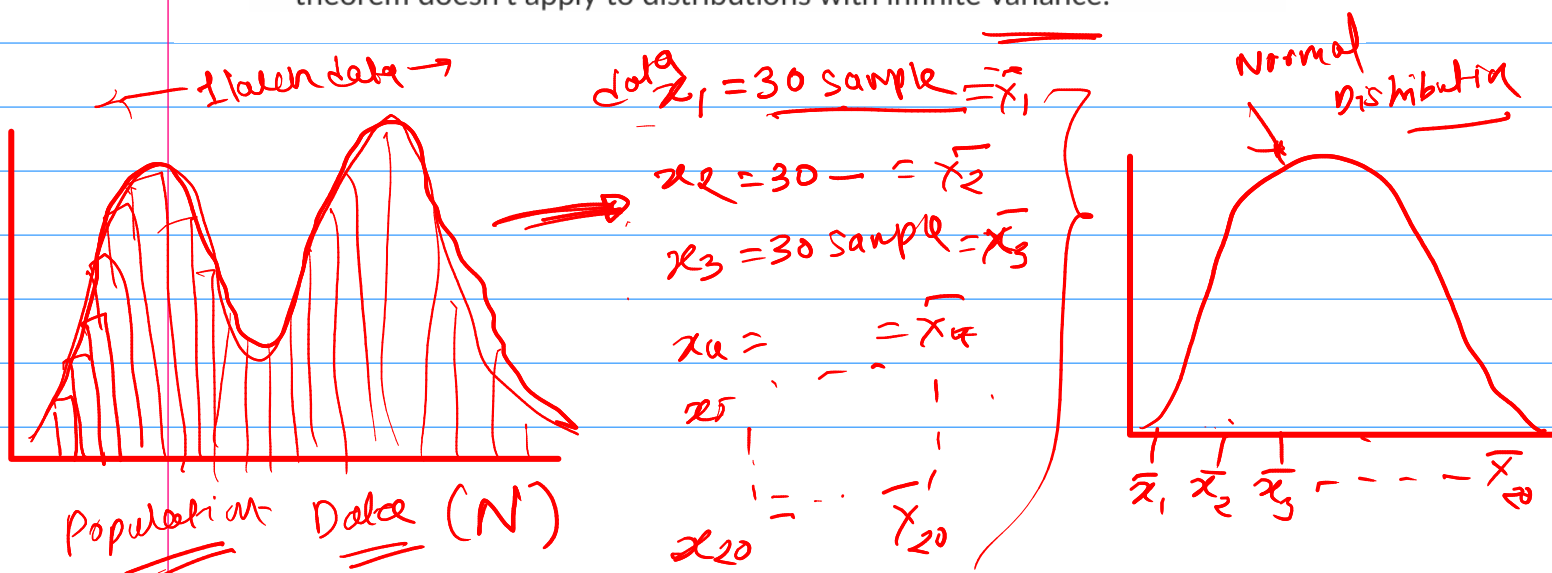 theorem doesn't apply to distributions with infinite variance.
1 lakh data
data
x₁ = 30 sample = x̄₁
x₂ = 30 — = x̄₂
x₃ = 30 sample = x̄₃
x₄ = = x̄₄
x₅
x₂₀ = - - x̄₂₀
Population Data (N)
Normal
Distribution
x̄₁ x̄₂ x̄₃ - - - - - x̄₂₀